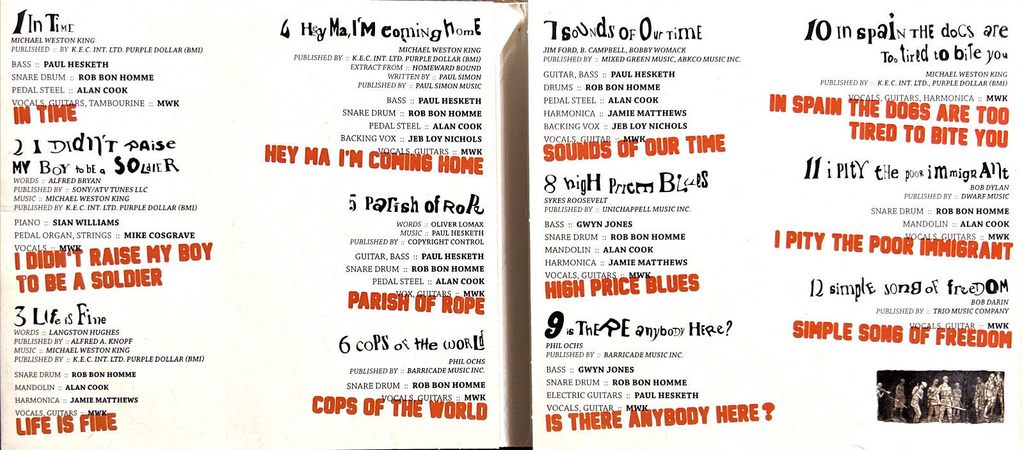 1 In Time
MICHAEL WESTON KING
PUBLISHED :: BY K.E.C. INT. LTD. PURPLE DOLLAR (BMI)
BASS :: PAUL HESKETH
SNARE DRUM :: ROB BON HOMME
PEDAL STEEL :: ALAN COOK
VOCALS, GUITARS, TAMBOURINE :: MWK
IN TIME
2 I Didn't Raise
My Boy to be a Soldier
WORDS :: ALFRED BRYAN
PUBLISHED BY :: SONY/ATV TUNES LLC
MUSIC :: MICHAEL WESTON KING
PUBLISHED BY :: K.E.C. INT. LTD. PURPLE DOLLAR (BMI)
PIANO :: SIAN WILLIAMS
PEDAL ORGAN, STRINGS :: MIKE COSGRAVE
VOCALS :: MWK
I DIDN'T RAISE MY BOY
TO BE A SOLDIER
3 Life is Fine
WORDS :: LANGSTON HUGHES
PUBLISHED BY :: ALFRED A. KNOPF
MUSIC :: MICHAEL WESTON KING
PUBLISHED BY :: K.E.C. INT. LTD. PURPLE DOLLAR (BMI)
SNARE DRUM :: ROB BON HOMME
MANDOLIN :: ALAN COOK
HARMONICA :: JAMIE MATTHEWS
VOCALS, GUITARS :: MWK
LIFE IS FINE
4 Hey Ma, I'm coming home
MICHAEL WESTON KING
PUBLISHED BY :: K.E.C. INT. LTD. PURPLE DOLLAR (BMI)
EXTRACT FROM :: HOMEWARD BOUND
WRITTEN BY :: PAUL SIMON
PUBLISHED BY :: PAUL SIMON MUSIC
BASS :: PAUL HESKETH
SNARE DRUM :: ROB BON HOMME
PEDAL STEEL :: ALAN COOK
BACKING VOX :: JEB LOY NICHOLS
VOCALS, GUITARS :: MWK
HEY MA I'M COMING HOME
5 Parish of Rope
WORDS :: OLIVER LOMAX
MUSIC :: PAUL HESKETH
PUBLISHED BY :: COPYRIGHT CONTROL
GUITAR, BASS :: PAUL HESKETH
SNARE DRUM :: ROB BON HOMME
PEDAL STEEL :: ALAN COOK
VOX, GUITARS :: MWK
PARISH OF ROPE
6 Cops of the World
PHIL OCHS
PUBLISHED BY :: BARRICADE MUSIC INC.
SNARE DRUM :: ROB BON HOMME
VOCALS, GUITARS :: MWK
COPS OF THE WORLD
7 Sounds of Our Time
JIM FORD, B. CAMPBELL, BOBBY WOMACK
PUBLISHED BY :: MIXED GREEN MUSIC, ABKCO MUSIC INC.
GUITAR, BASS :: PAUL HESKETH
DRUMS :: ROB BON HOMME
PEDAL STEEL :: ALAN COOK
HARMONICA :: JAMIE MATTHEWS
BACKING VOX :: JEB LOY NICHOLS
VOCALS, GUITAR :: MWK
SOUNDS OF OUR TIME
8 High Price Blues
SYKES ROOSEVELT
PUBLISHED BY :: UNICHAPPELL MUSIC INC.
BASS :: GWYN JONES
SNARE DRUM :: ROB BON HOMME
MANDOLIN :: ALAN COOK
HARMONICA :: JAMIE MATTHEWS
VOCALS, GUITARS :: MWK
HIGH PRICE BLUES
9 is There anybody Here?
PHIL OCHS
PUBLISHED BY :: BARRICADE MUSIC INC.
BASS :: GWYN JONES
SNARE DRUM :: ROB BON HOMME
ELECTRIC GUITARS :: PAUL HESKETH
VOCALS, GUITAR :: MWK
IS THERE ANYBODY HERE?
10 In Spain the dogs are
Too tired to bite you
MICHAEL WESTON KING
PUBLISHED BY :: K.E.C. INT. LTD., PURPLE DOLLAR (BMI)
VOCALS, GUITARS, HARMONICA :: MWK
IN SPAIN THE DOGS ARE TOO
TIRED TO BITE YOU
11 i pity the poor immigrant
BOB DYLAN
PUBLISHED BY :: DWARF MUSIC
SNARE DRUM :: ROB BON HOMME
MANDOLIN :: ALAN COOK
VOCALS, GUITARS :: MWK
I PITY THE POOR IMMIGRANT
12 simple song of freedom
BOB DARIN
PUBLISHED BY :: TRIO MUSIC COMPANY
VOCALS, GUITAR :: MWK
SIMPLE SONG OF FREEDOM